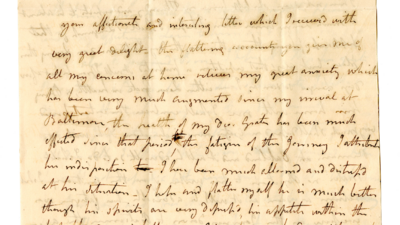 your affectionate and interesting letter which I received with
very great delight the flattering account you give me of
all my concerns at home relieves my great anxiety which
has been very much augmented since my arrival at
Baltimore the health of my Dear has been much
effected since that period the fatigue of the Journey I attribute
his indisposition to I have been much alarmed and distress'd
at his situation. I hope and flatter myself he is much better
though his spirits are very depress'd his appetite within the